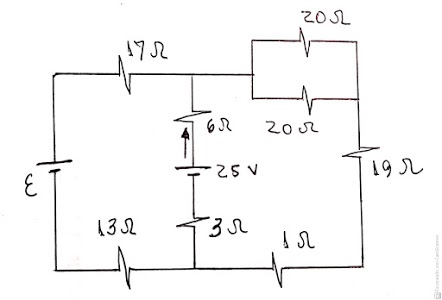 20Ω
17Ω
6Ω
20Ω
25 V
19Ω
ε
13Ω
3Ω
1Ω